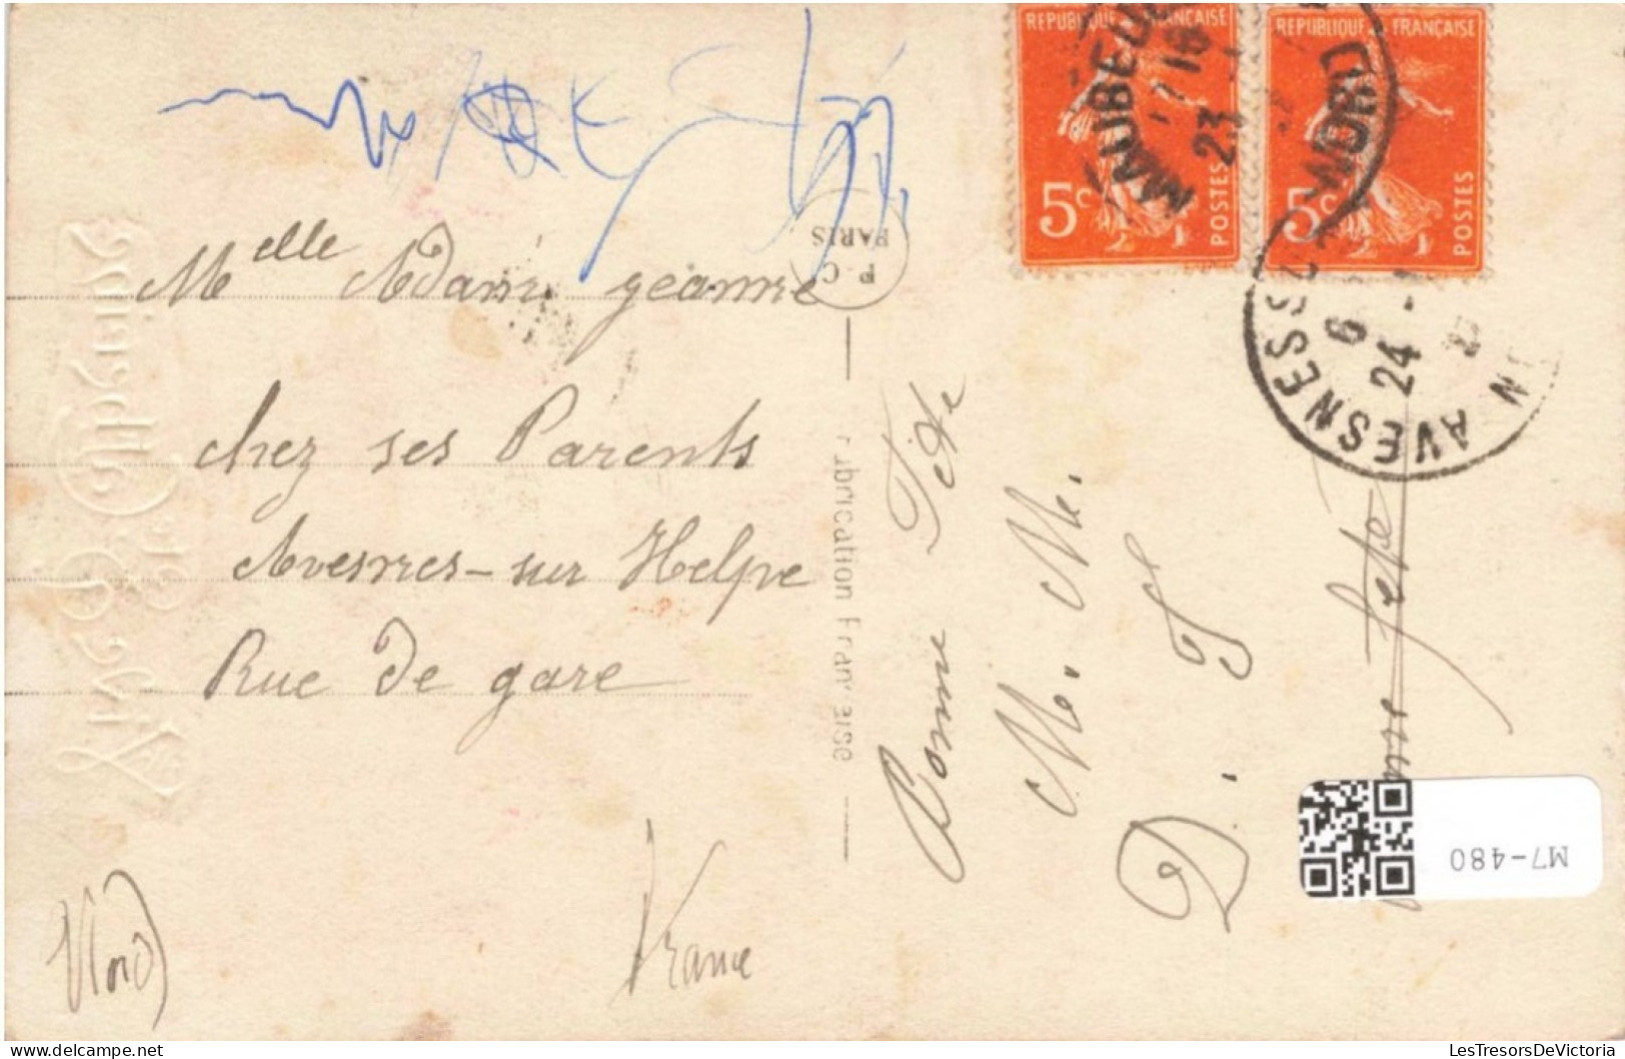 Melle Adam jeanne
chez ses Parents
Avesnes-sur Helpe
Rue de gare
(Nord)
France
P.C
PARIS
Fabrication Française
Bonne Fête
M. M.
D. F
Bonne fete
REPUBLIQUE FRANÇAISE
5c
POSTES
REPUBLIQUE FRANÇAISE
5c
POSTES
MAUBEU
17 18
23
NORD
AVESNES S
6
24
M7-480
LesTresorsDeVictoria